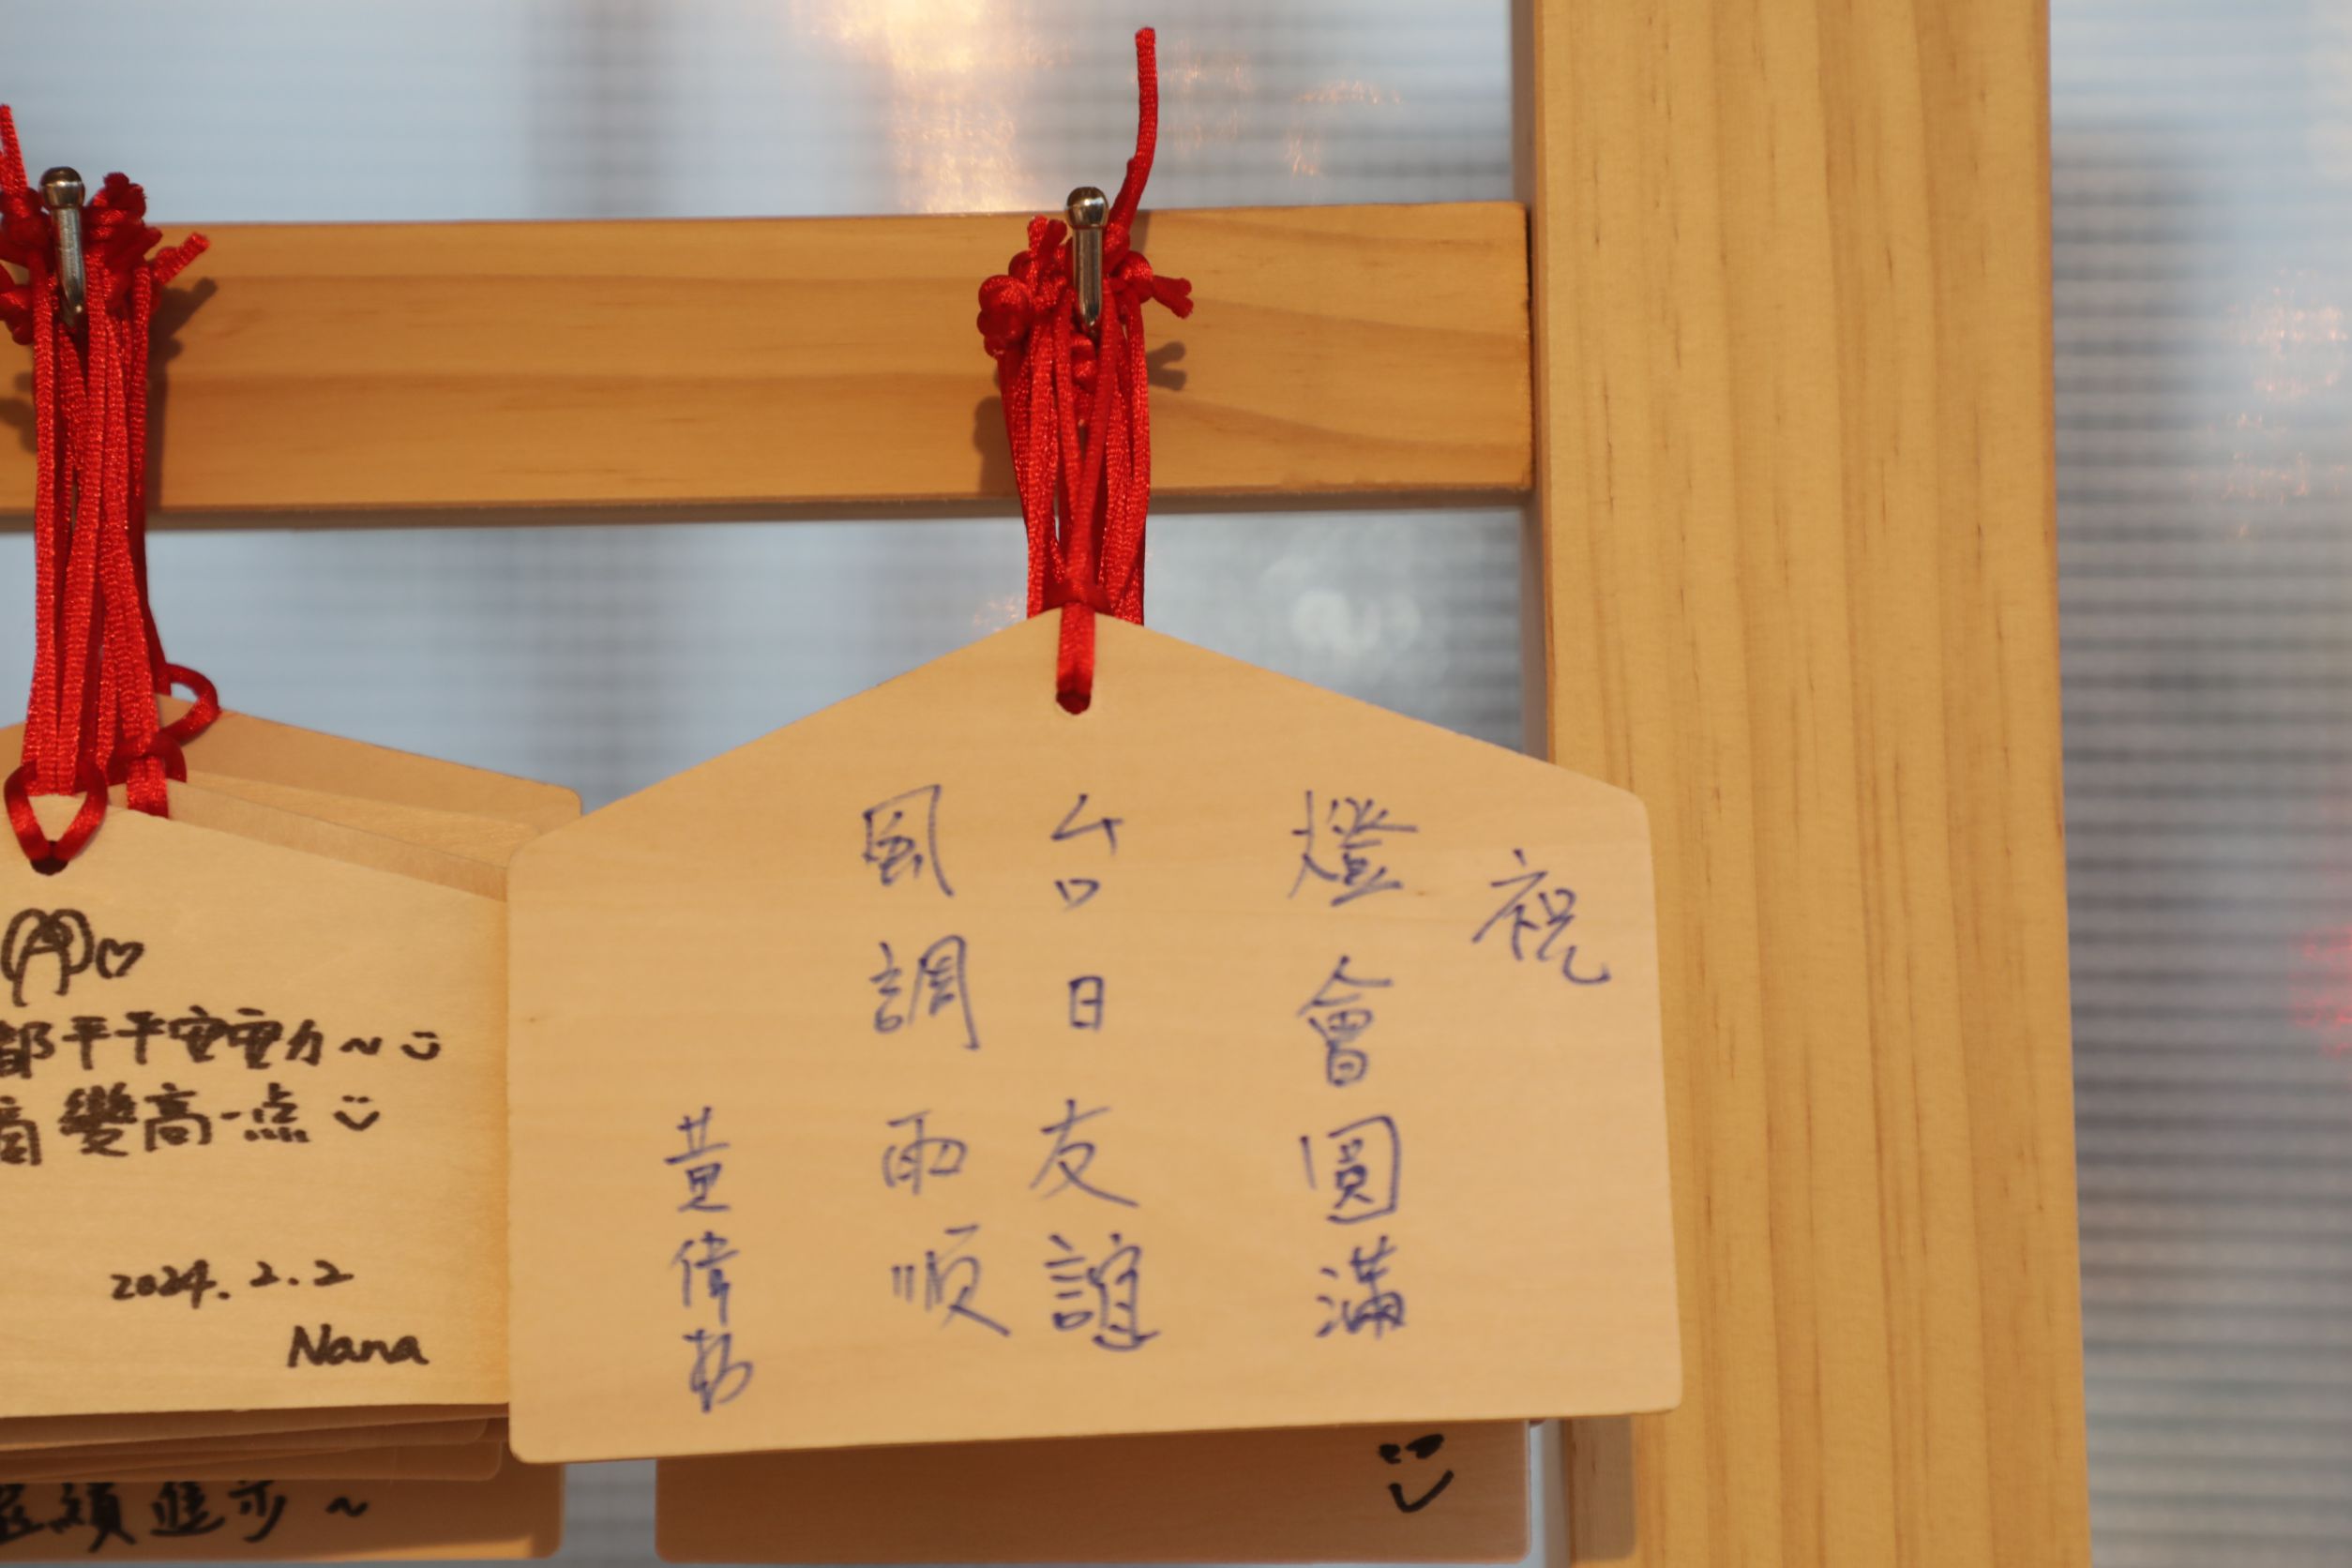 祝
燈會圓滿
台日友誼
風調雨順
黃偉勃
都平平安安力~
變高一点
2024.2.2
Nana
續進步~